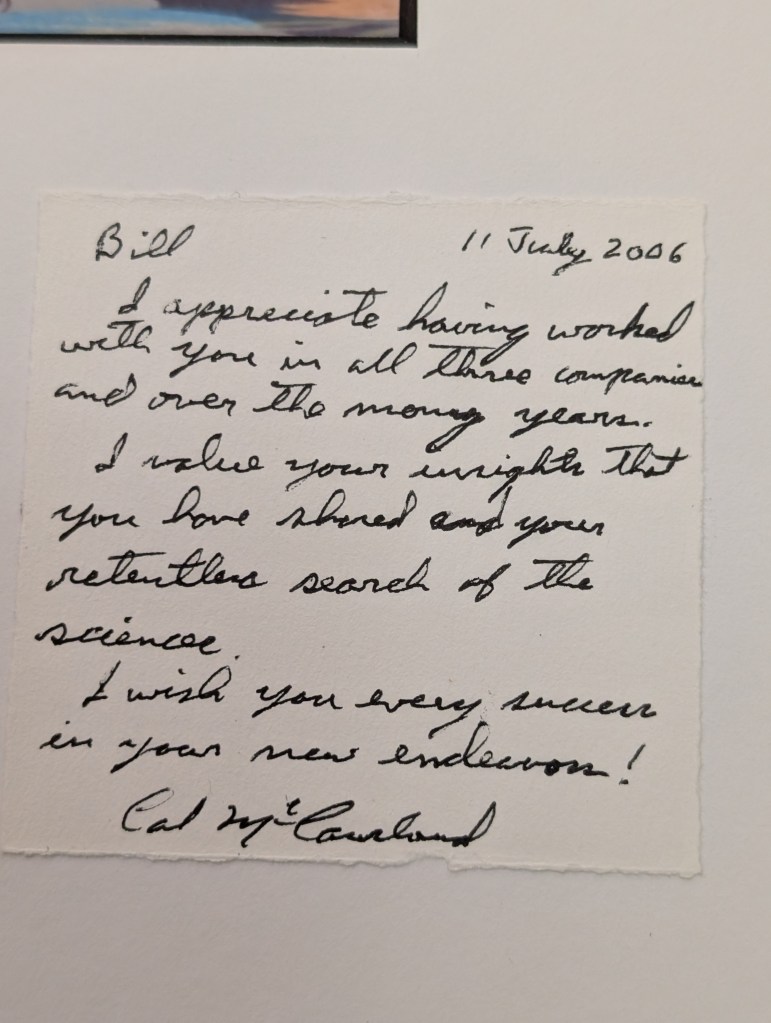 Bill 11 July 2006
I appreciate having worked
with you in all three companies
and over the many years.
I value your insights that
you have shared and your
retentless search of the
science.
I wish you every success
in your new endeavors!
Cal